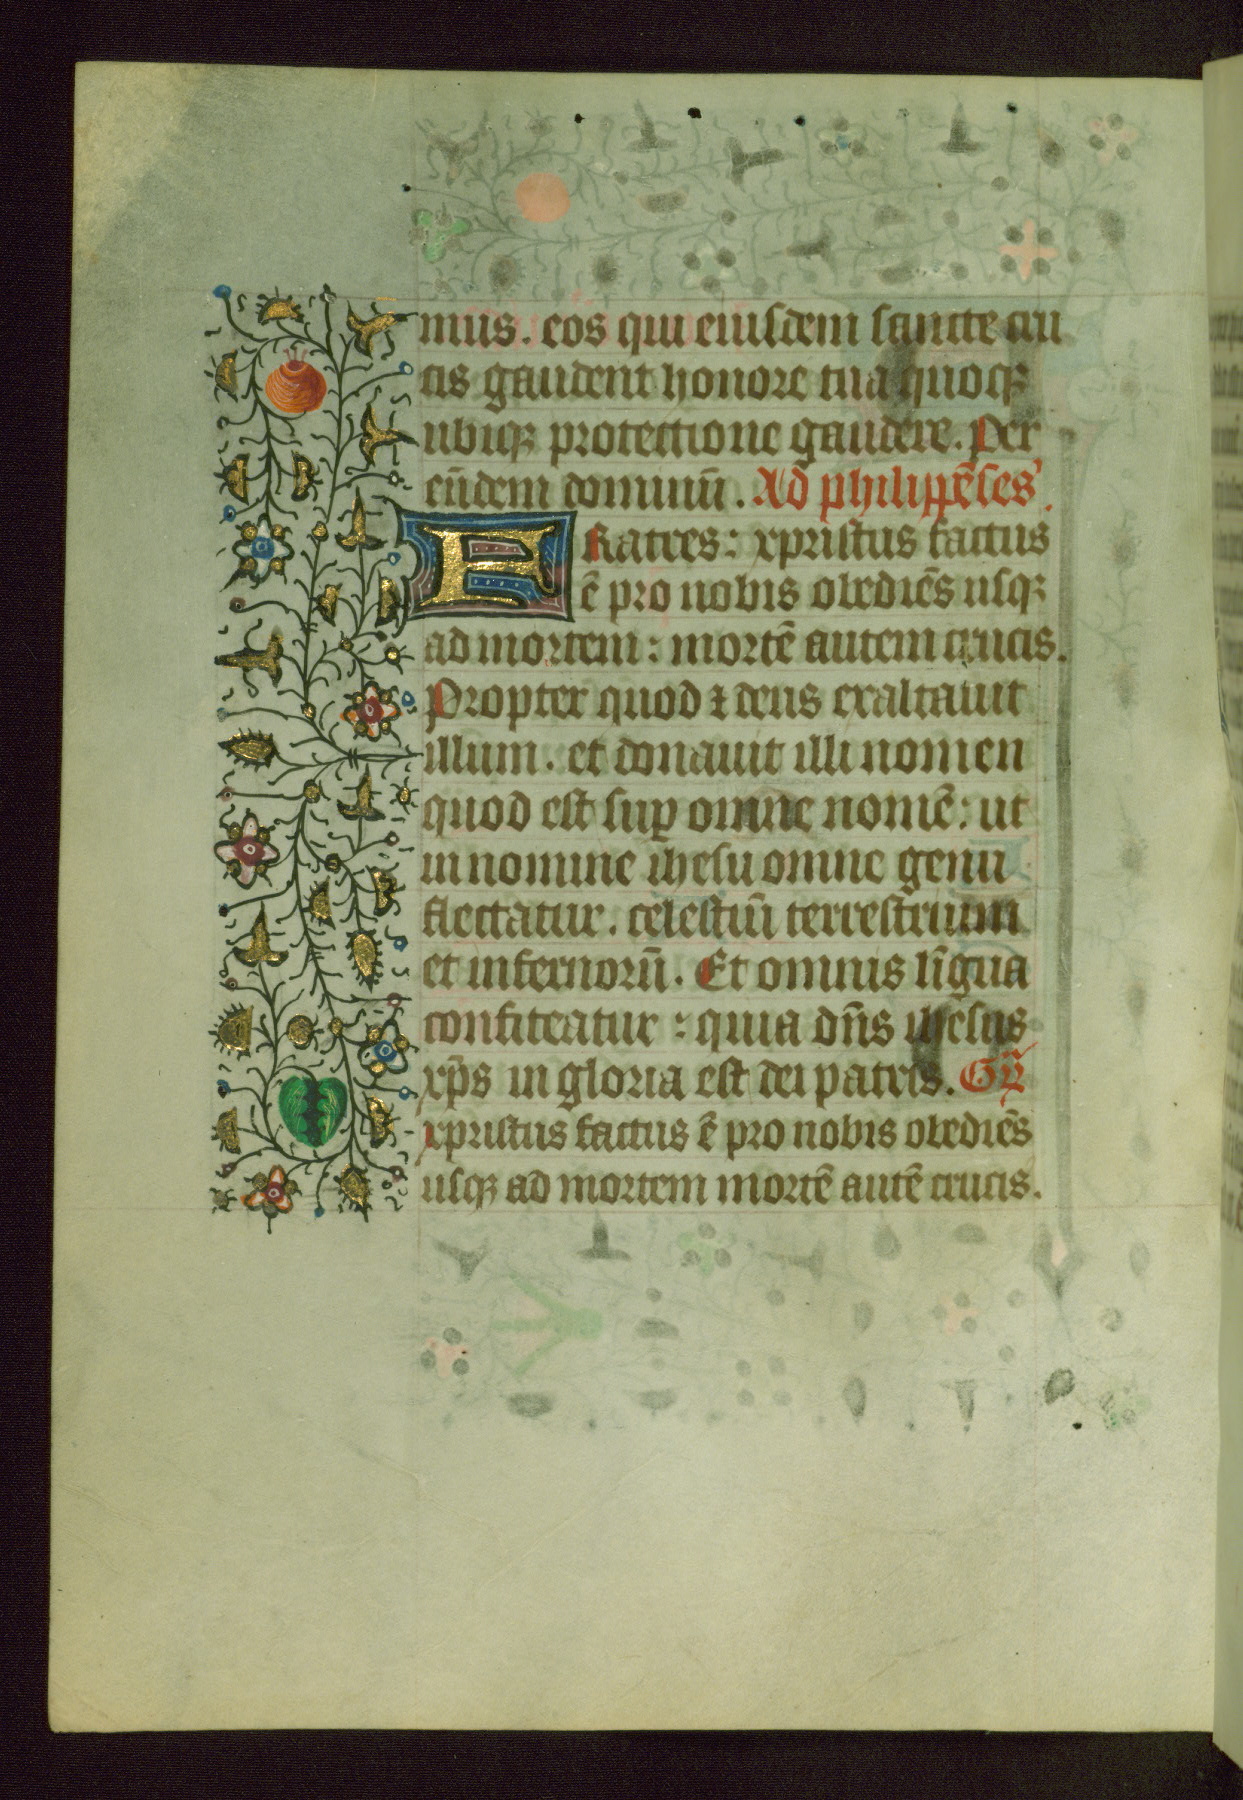 mus. eos qui eiusdem sancte cru
cis gaudent honore tua quoqꝫ
ubiqꝫ protectione gaudere. Per
eūdem dominū. Ad philippēses.
FRatres: xpristus factus
ē pro nobis obediēs usqꝫ
ad mortem: mortē autem crucis.
Propter quod ⁊ deus exaltauit
illum. et donauit illi nomen
quod est suꝑ omne nomē: ut
in nomine ihesu omne genu
flectatur. celestiū terrestrium
et infernorū. Et omnis līgua
confiteatur: quia dn̄s ihesus
xp̄s in gloria est dei patris. Gͬ
xpristus factus ē pro nobis obediēs
usqꝫ ad mortem mortē autē crucis.